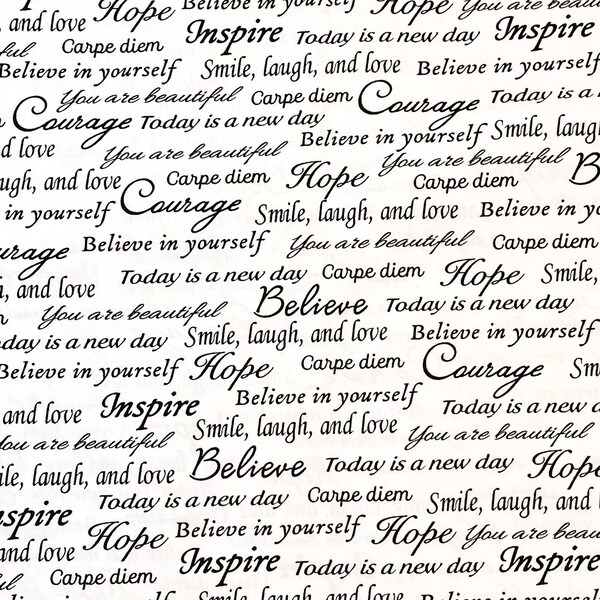 Believe in yourself Hope You are beau
, and love Hope Inspire Today is a new day Inspire
ful Carpe diem
Believe in yourself Smile, laugh, and love Believe in yourself
You are beautiful Carpe diem Courage Today is a n
Courage Today is a new day
Believe in yourself Smile, laugh
d love You are beautiful You are beautiful
ugh, and love Carpe diem Hope Carpe diem B
in yourself Courage Smile, laugh, and love Believe in yo
urage Believe in yourself You are beautiful Carpe diem
, and love Today is a new day Carpe diem Hope Smile,
You are beautiful Believe Today is a new day
day is a new day Smile, laugh, and love Believe in yourself
Believe in yourself Hope Carpe diem Courage Sm
and love Inspire Believe in yourself Today is a new d
You are beautiful Smile, laugh, and love You are beautiful
ile, laugh, and love Believe Today is a new day Hope
Today is a new day Carpe diem Smile, laugh, and l
nspire Hope Believe in yourself Hope You are beau
and love Inspire Today is a new day Inspire
ful Carpe diem
Smile, laugh, and love Believe in yourself